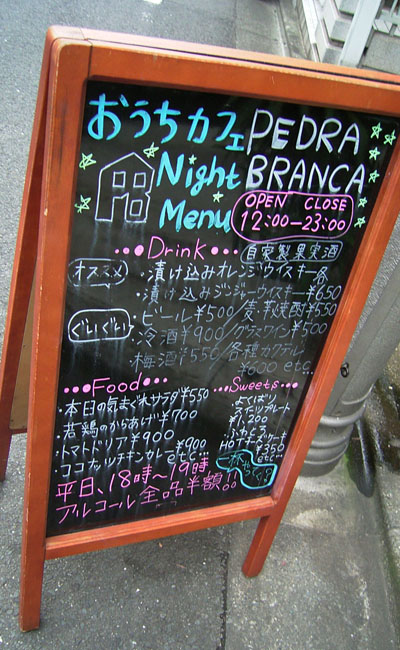 おうちカフェ PEDRA BRANCA
Night Menu
OPEN CLOSE
12:00-23:00
Drink
自家製果実酒
オススメ
・漬け込みオレンジウイスキー各
・漬け込みジンジャーウイスキー¥650
ぐいぐい
・ビール¥500 麦・芋焼酎¥550
・冷酒¥900 グラスワイン¥500
・梅酒¥550 各種カクテル
¥600 etc…
Food
・本日の気まぐれサラダ¥550
・若鶏のからあげ¥700
・トマトドリア¥900
・ココナッツチキンカレー¥900
etc…
Sweets
よくばり
スイーツプレート
¥1,200
ふわとろ
HOTチーズケーキ
¥350
etc…
平日、18時〜19時
アルコール全品半額!!